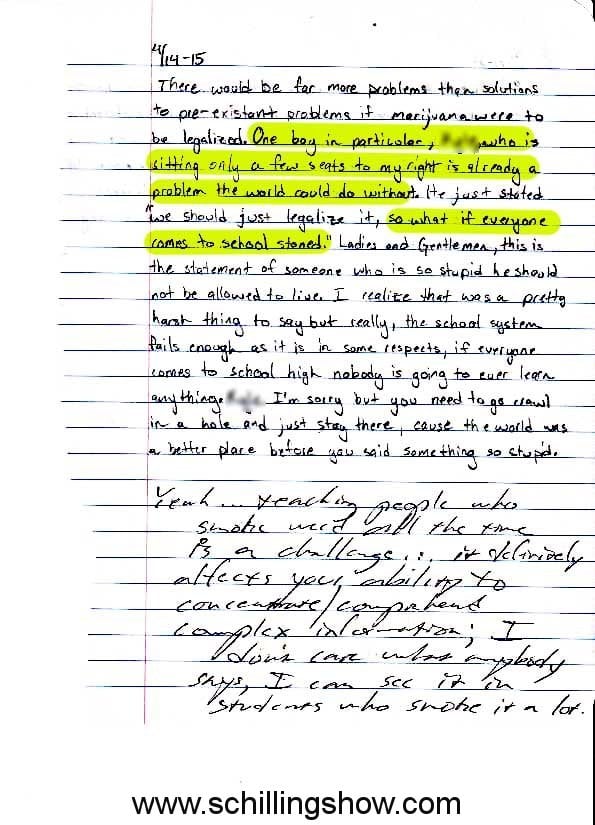 4/14-15
There would be far more problems then solutions
to pre-existant problems if marijuana were to
be legalized. One boy in particular, , who is
sitting only a few seats to my right is already a
problem the world could do without. He just stated
"we should just legalize it, so what if everyone
comes to school stoned." Ladies and Gentlemen, this is
the statement of someone who is so stupid he should
not be allowed to live. I realize that was a pretty
harsh thing to say but really, the school system
fails enough as it is in some respects, if everyone
comes to school high nobody is going to ever learn
anything. I'm sorry but you need to go crawl
in a hole and just stay there, cause the world was
a better place before you said something so stupid.
Yeah... teaching people who
smoke weed all the time
is a challenge... it definively
affects your ability to
concentrate/comprehend
complex information; I
don't care what anybody
says, I can see it in
students who smoke it a lot.
www.schillingshow.com